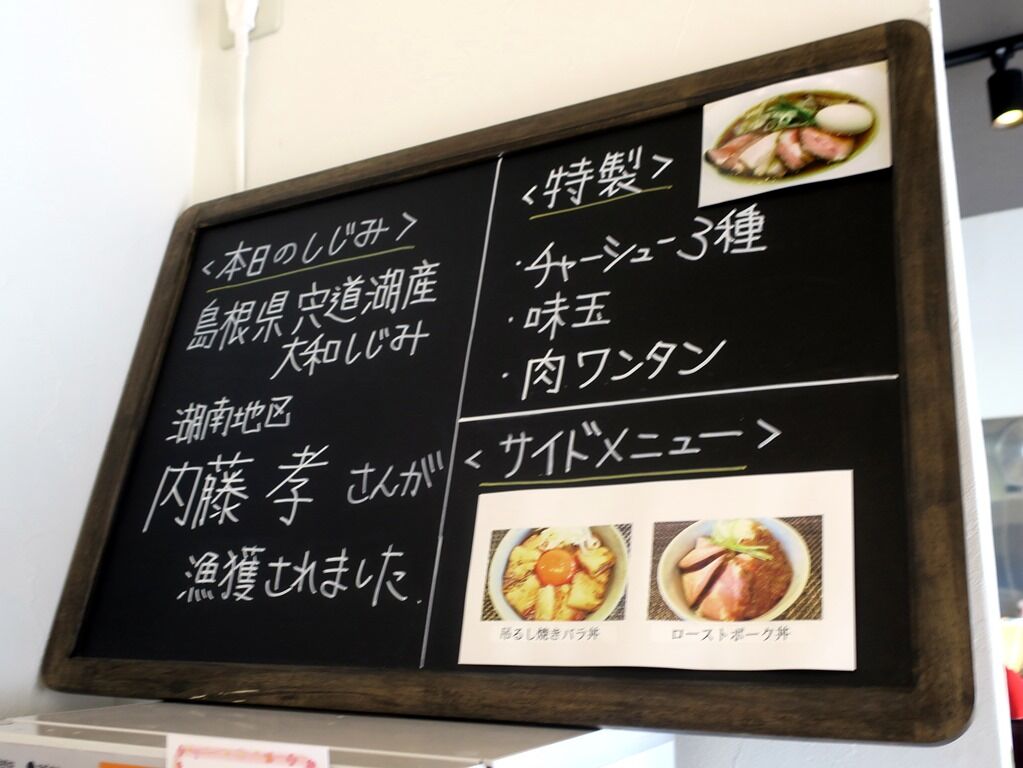 <本日のしじみ>
島根県宍道湖産
大和しじみ
湖南地区
内藤 孝 さんが
漁獲されました.
<特製>
・チャーシュー3種
・味玉
・肉ワンタン
<サイドメニュー>
吊るし焼きバラ丼
ローストポーク丼